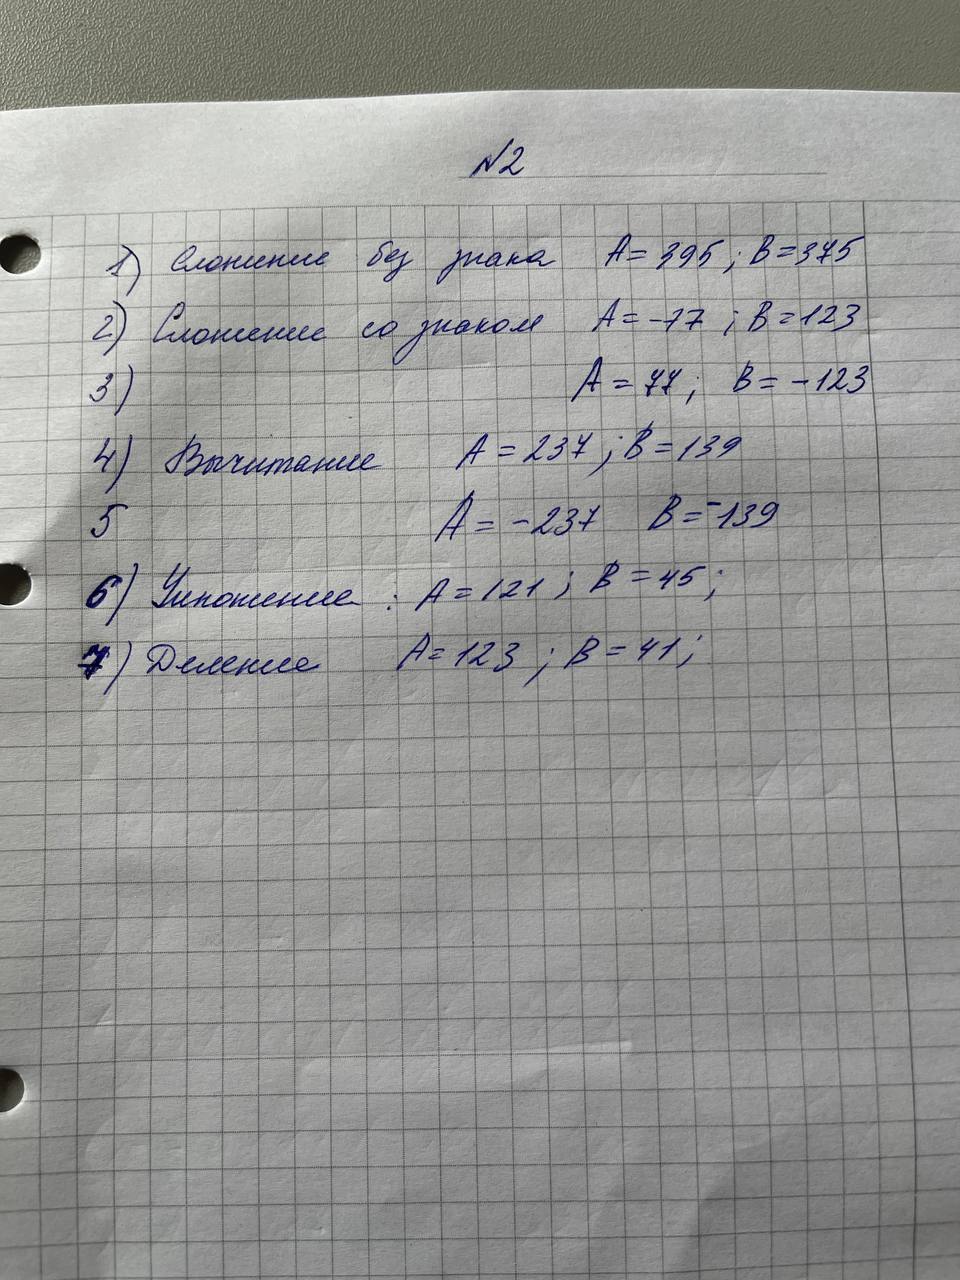 N2
1) Сложение без знака A = 395 ; B = 375
2) Сложение со знаком A = -77 ; B = 123
3) A = 77 ; B = -123
4) Вычитание A = 237 ; B = 139
5 A = -237 B = -139
6) Умножение : A = 121 ; B = 45 ;
7) Деление A = 123 ; B = 41 ;